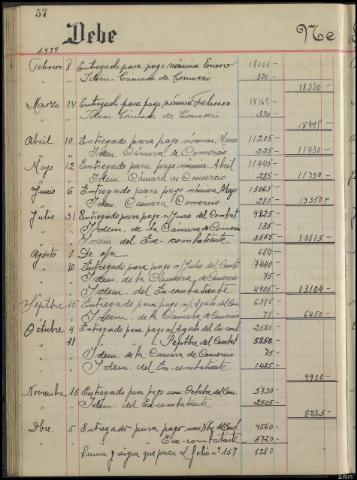 57
Debe
Ne
1939
Febrero 8 Entregado para pago nómina Enero 18000-
" Idem. Camada de Comercio 330- 18330-
Marzo 14 Entregado para pago nómina Febrero 18165-
" Idem Camada de Comercio 330- 18495-
Abril 10 Entregado para pago nómina Marzo 11205-
" Idem. Cámara de Comercio 225- 11430-
Mayo 12 Entregado para pago nómina Abril 11445-
" Idem. Cámara de Comercio 285- 11730-
Junio 6 Entregado para pago nómina Mayo 13065-
" Idem. Cámara Comercio 285- 13350-
Julio 31 Entregado para pago n/Junio del Combat 9825-
" Idem. de la Cámara de Comercio 135-
" Idem del Ex-combatiente 3555- 13515-
Agosto 1 De 624-
" 10 Entregado para pago n/Julio del Comb 7440-
" Idem de la Cámara de Comercio 75-
" Idem. del Ex-combatiente 4905- 13104-
Septbre 15 Entregado para pago n/Agosto del Com 6375-
" Idem de la Cámara de Comercio 75- 6450-
Octubre 4 Entregado para pago n/Agosto del Ex-comb 2580-
" 11 " " Septbre del Combat 5850-
" Idem. de la Cámara de Comercio 75-
" Idem. del Ex-combatiente 1425- 9930-
Noviembre 15 Entregado para pago nom Octubre del Com. 5730-
" Idem. del Ex-combatiente 2505- 8235-
Dbre 5 Entregado para pago nom Nbre del Comb 4560-
" " Ex-combatiente 3720-
Suma y sigue que pasa al folio nº 157 8280